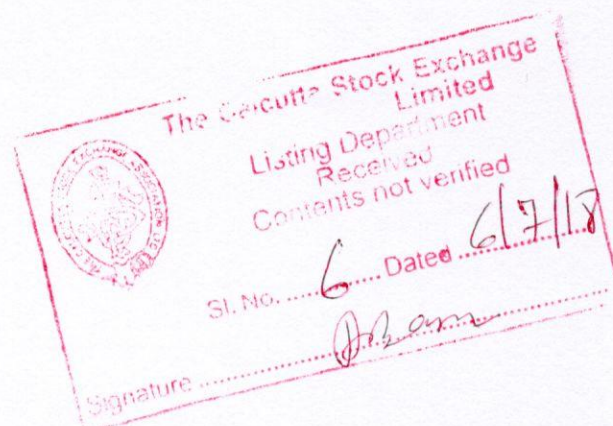 The Calcutta Stock Exchange
Limited
Listing Department
Received
Contents not verified
Sl. No. ...... 6 ...... Dated 6/7/18
Signature